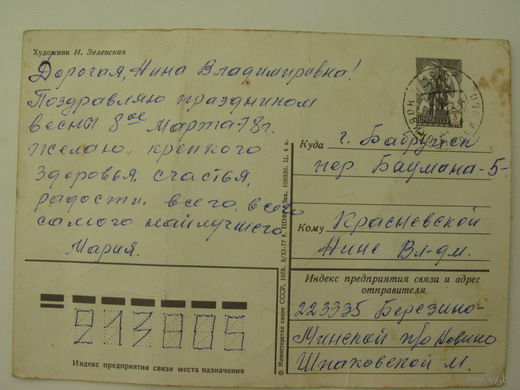 Художник И. Зеленская
Дорогая, Нина Владимировна!
Поздравляю праздником
весны 8ое Марта 78г.
желаю, крепкого
здоровья, счастья,
радости, всего, всего
самого найлучшего
Мария.
Куда г. Бабруйск
пер. Баумана-5-
Кому Красневской
Нине Вл-дм.
Индекс предприятия связи и адрес
отправителя.
223335 Березино-
Минской п/о
Шпаковской М.
213805
Индекс предприятия связи места назначения
© Министерство связи СССР, 1976.
ПОЧТА СССР
www.ay.by